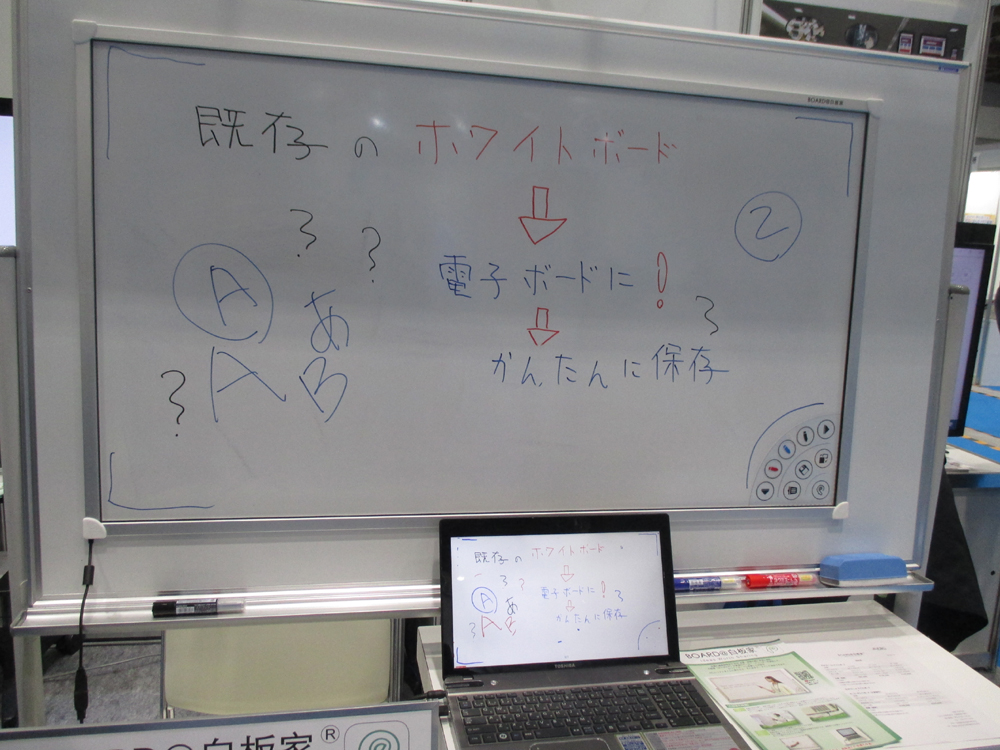 BOARD@白板家
既存のホワイトボード
②
? ?
電子ボードに!
Ⓐ あ
?
かんたんに保存
? A B
既存のホワイトボード
? ?
電子ボードに!
Ⓐ あ
?
かんたんに保存
? A
TOSHIBA
BOARD@白板家
@白板家®
@